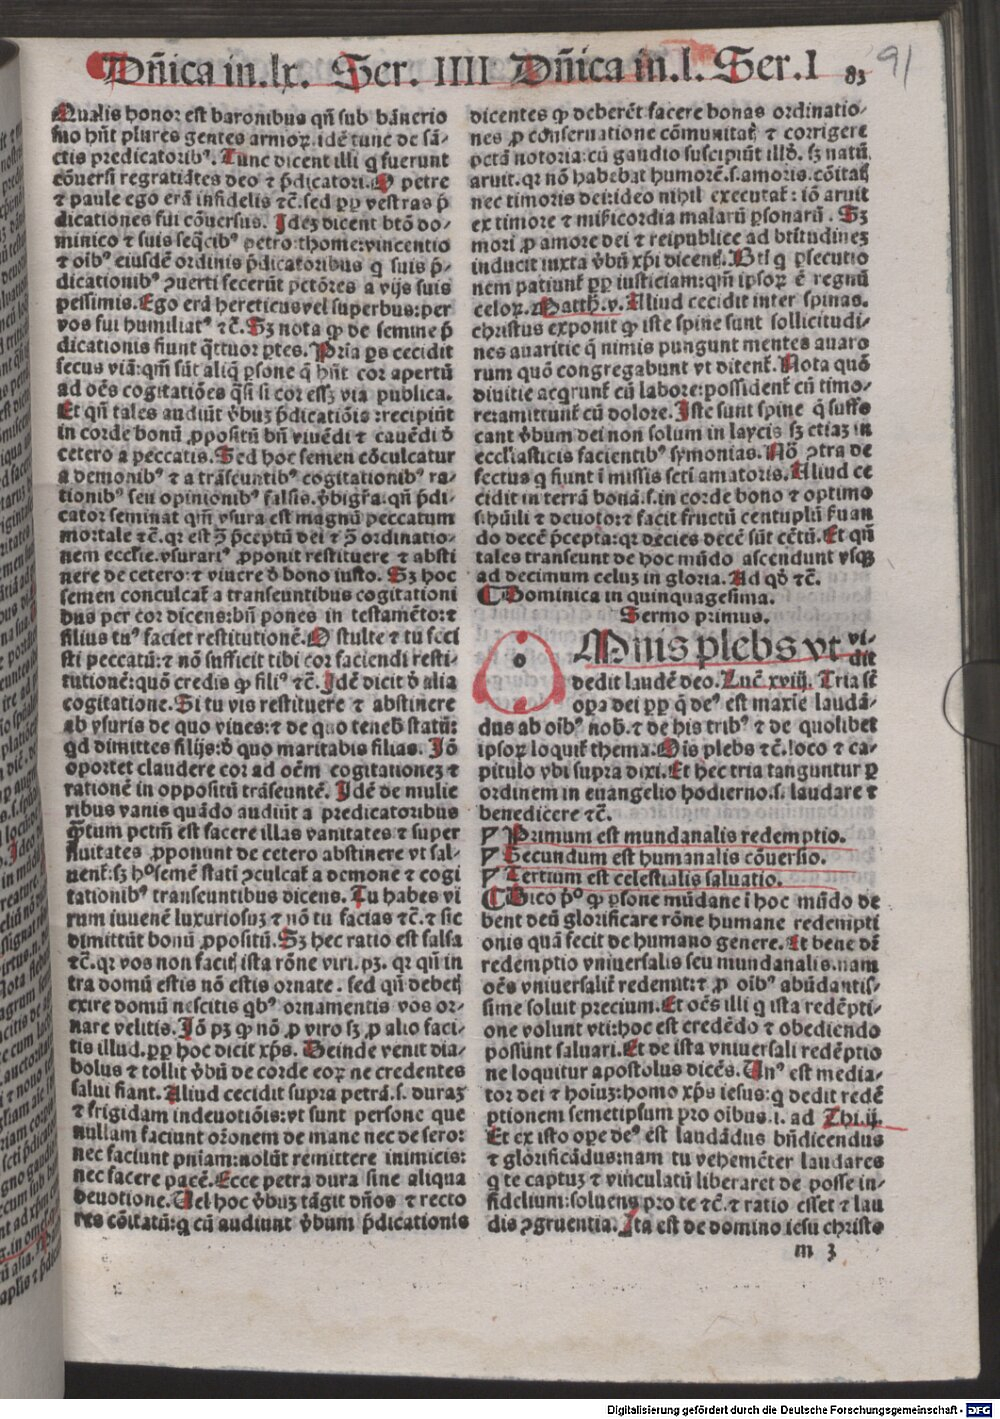 Dñica in.lx. Ser. IIII Dñica in.l. Ser.I 83
91
Qualis honor est baronibus qñ sub bãnerio
suo hñt plures gentes armoꝝ.idẽ tunc de sã-
ctis predicatoribꝰ. Tunc dicent illi q̇ fuerunt
cõuersi regratiãtes deo ⁊ p̃dicatori. O petre
⁊ paule ego erã infidelis ⁊c̃. sed ꝑp vestras p̃
dicationes fui cõuersus. Idez dicent btõ do-
minico ⁊ suis seq̃cibꝰ petro:thome:vincentio
⁊ oibꝰ eiusdẽ ordinis p̃dicatoribus q̇ suis p̃-
dicationibꝰ ꝯuerti fecerũt pctõres a vijs suis
pessimis. Ego erã hereticus vel superbus:per
vos fui humiliatꝰ ⁊c̃. Sꝫ nota ꝙ de semine p̃
dicationis fiunt q̃ttuor ptes. Pria ps cecidit
secus viã:qm̃ sũt aliq̃ ꝑsone q̃ hñt cor apertũ
ad oẽs cogitatiões q̃si si cor essꝫ via publica.
Et qñ tales audiũt v̓buꝫ p̃dicatiõis:recipiũt
in corde bonũ ꝓpositũ bñ viuẽdi ⁊ cauẽdi d̓
cetero a peccatis. Sed hoc semen cõculcatur
a demonibꝰ ⁊ a trãseuntibꝰ cogitationibꝰ ra-
tionibꝰ seu opinionibꝰ falsis. v̓bigr̃a.qñ p̃di-
cator seminat qm̃ vsura est magnũ peccatum
mortale ⁊c̃.qr est ꝯ̃ p̃ceptũ dei ⁊ ꝯ̃ ordinatio-
nem eccl̃ie.vsurariꝰ ꝓponit restituere ⁊ absti
nere de cetero:⁊ viuere d̓ bono iusto. Sꝫ hoc
semen conculcat̃ a transeuntibus cogitationi
bus per cor dicens:bñ pones in testamẽto:⁊
filius tuꝰ faciet restitutionẽ. O stulte ⁊ tu feci
sti peccatũ:⁊ nõ sufficit tibi cor faciendi resti-
tutionẽ:quõ credis ꝙ filiꝰ ⁊c̃. Idẽ dicit d̓ alia
cogitatione. Si tu vis restituere ⁊ abstinere
ab vsuris de quo viues:⁊ de quo teneb̃ statũ:
qd dimittes filijs:d̓ quo maritabis filias. Iõ
oportet claudere cor ad oẽm cogitationeꝫ ⁊
rationẽ in oppositũ trãseuntẽ. Idẽ de mulie
ribus vanis quãdo audiũt a predicatoribus
q̃tum petm̃ est facere illas vanitates ⁊ super
fluitates ꝓponunt de cetero abstinere vt sal-
uent̃:sꝫ hº semẽ stati ꝯculcat̃ a demone ⁊ cogi
tationibꝰ transeuntibus dicens. Tu habes vi
rum iuuenẽ luxuriosuꝫ ⁊ nõ tu facias ⁊c̃.⁊ sic
dimittũt bonũ ꝓpositũ. Sꝫ hec ratio est falsa
⁊c̃.qr vos non facitꝭ ista rõne viri.pꝫ. qr qñ in
tra domũ estis nõ estis ornate. sed qñ debetꝭ
exire domũ nescitis qbꝰ ornamentis vos or-
nare velitis. Iõ pꝫ ꝙ nõ ꝓ viro sꝫ ꝓ alio faci-
tis illud.ꝑp hoc dicit xp̃s. Deinde venit dia-
bolus ⁊ tollit v̓bũ de corde eoꝝ ne credentes
salui fiant. Aliud cecidit supra petrã.s. duraꝫ
⁊ frigidam indeuotiõis:vt sunt persone que
nullam faciunt oꝛonem de mane nec de sero:
nec faciunt pñiam:nolũt remittere inimicis:
nec facere pacẽ. Ecce petra dura sine aliqua
deuotione. Uel hoc v̓buꝫ tãgit dños ⁊ recto
res cõitatũ:q̇ cũ audiunt v̓bum p̃dicationis
dicentes ꝙ deberẽt facere bonas ordinatio-
nes ꝓ conseruatione cõmunitatꝭ ⁊ corrigere
pctã notoria:cũ gaudio suscipiũt illd̓. sꝫ natũ
aruit.qr nõ habebat humorẽ.s.amoris.cõitatꝭ
nec timoris dei:ideo nihil executat̃: iõ aruit
ex timore ⁊ mĩsicordia malarũ ꝑsonarũ. Sꝫ
mori ꝓ amore dei ⁊ reipublice ad btĩtudineꝫ
inducit iuxta v̓bũ xp̃i dicentꝭ. Bti q̇ ꝑsecutio
nem patiunt̃ ꝑp iusticiam:qm̃ ipsoꝝ ẽ regnũ
celoꝝ. Matth.v. Aliud cecidit inter spinas.
christus exponit ꝙ iste spine sunt sollicitudi-
nes auaritie q̃ nimis pungunt mentes auaro
rum quõ congregabunt vt ditent̃. Nota quõ
diuitie acq̇runt̃ cũ labore:possident̃ cũ timo-
re:amittunt̃ cũ dolore. Iste sunt spine q̃ suffo
cant v̓bum dei non solum in laycis sꝫ etiaꝫ in
ecclesiasticis facientibꝰ symonias. Nõ ꝯtra de
fectus q̇ fiunt ĩ missis scti amatoris. Aliud ce
cidit in terrã bonã.s.in corde bono ⁊ optimo
s.hũili ⁊ deuoto:⁊ facit fructũ centuplũ s̓uan
do decẽ p̃cepta:qr decies decẽ sũt cẽtũ. Et qñ
tales transeunt de hoc mũdo ascendunt vsqꝫ
ad decimum celuꝫ in gloria. Ad qd̓ ⁊c̃.
Dominica in quinquagesima.
Sermo primus.
Mnis plebs vt vi-
dit
dedit laudẽ deo. Luc̃ xviij. Tria sc̃
opa dei ꝑp q̃ deꝰ est maxĩe laudã-
dus ab oibꝰ nob̃.⁊ de his tribꝰ ⁊ de quolibet
ipsoꝝ loquit̃ thema. Ois plebs ⁊c̃.loco ⁊ ca-
pitulo vbi supra dixi. Et hec tria tanguntur ꝑ
ordinem in euangelio hodierno.s. laudare ⁊
benedicere ⁊c̃.
Primum est mundanalis redemptio.
Secundum est humanalis cõuersio.
Tertium est celestialis saluatio.
Dico pº ꝙ ꝑsone mũdane ĩ hoc mũdo de
bent deũ glorificare rõne humane redempti
onis quã fecit de humano genere. Et bene dr̃
redemptio vniuersalis seu mundanalis.nam
oẽs vniuersalit̃ redemit:⁊ ꝓ oibꝰ abũdantis-
sime soluit precium. Et oẽs illi q̇ ista redẽpti-
one volunt vti:hoc est credẽdo ⁊ obediendo
possunt saluari. Et de ista vniuersali redẽptio
ne loquitur apostolus dicẽs. Unꝰ est media-
tor dei ⁊ hoiuꝫ:homo xp̃s iesus:q̇ dedit redẽ
ptionem semetipsum pro oibus.i. ad Thi.ij.
Et ex isto ope deꝰ est laudãdus bñdicendus
⁊ glorificãdus:nam tu vehemẽter laudares
q̇ te captuꝫ ⁊ vinculatũ liberaret de posse in-
fidelium:soluens pro te ⁊c̃.⁊ ratio esset ⁊ lau
dis ꝯgruentia. Ita est de domino iesu christo
m 3
Digitalisierung gefördert durch die Deutsche Forschungsgemeinschaft - DFG